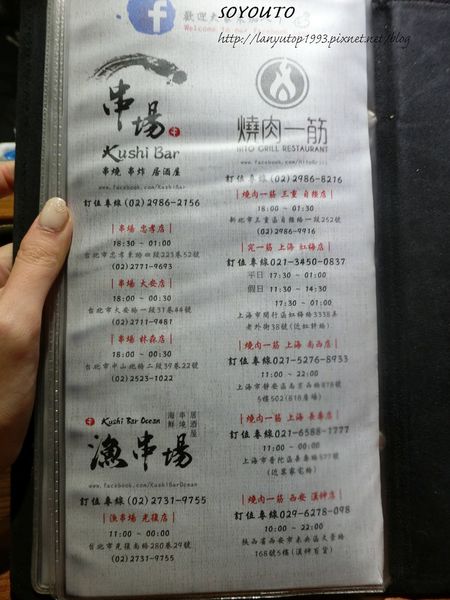 SOYOUTO
http://lanyutop1993.pixnet.net/blog
歡迎
Welcome to our
串場
Kushi Bar
串燒 串炸 居酒屋
www.facebook.com/KushiBar
訂位專線(02)2986-2156
|串場 忠孝店|
18:30 ~ 01:00
台北市忠孝東路四段223巷52號
(02)2771-9693
|串場 大安店|
18:00 ~ 00:30
台北市大安路一段31巷44號
(02)2711-9481
|串場 林森店|
18:00 ~ 00:00
台北市中山北路二段39巷22號
(02)2523-1022
Kushi Bar Ocean
海鮮
串燒
居酒屋
漁串場
www.facebook.com/KushiBarOcean
訂位專線(02)2731-9755
|漁串場 光復店|
11:00 ~ 00:00
台北市光復南路280巷29號
(02)2731-9755
燒肉一筋
HITO GRILL RESTAURANT
www.facebook.com/HitoGrill
訂位專線(02)2986-8216
|燒肉一筋 三重 自強店|
18:00 ~ 01:30
新北市三重區自強路一段252號
(02)2986-9916
|完一筋 上海 虹梅店|
訂位專線021-3450-0837
平日 17:30 ~ 01:00
假日 11:30 ~ 14:30
17:30 ~ 01:00
上海市閔行區虹梅路3338弄
老外街38號(近虹許路)
|燒肉一筋 上海 南西店|
訂位專線021-5276-8933
11:00 ~ 22:00
上海市靜安區南京西路818號
5樓502(818廣場)
|燒肉一筋 上海 長壽店|
訂位專線021-6588-1777
11:00 ~ 00:00
上海市普陀區長壽路577號
(近葉家宅路)
|燒肉一筋 西安 漢神店|
訂位專線029-6278-098
10:00 ~ 22:00
陝西省西安市未央區文景路
168號5樓(漢神百貨)